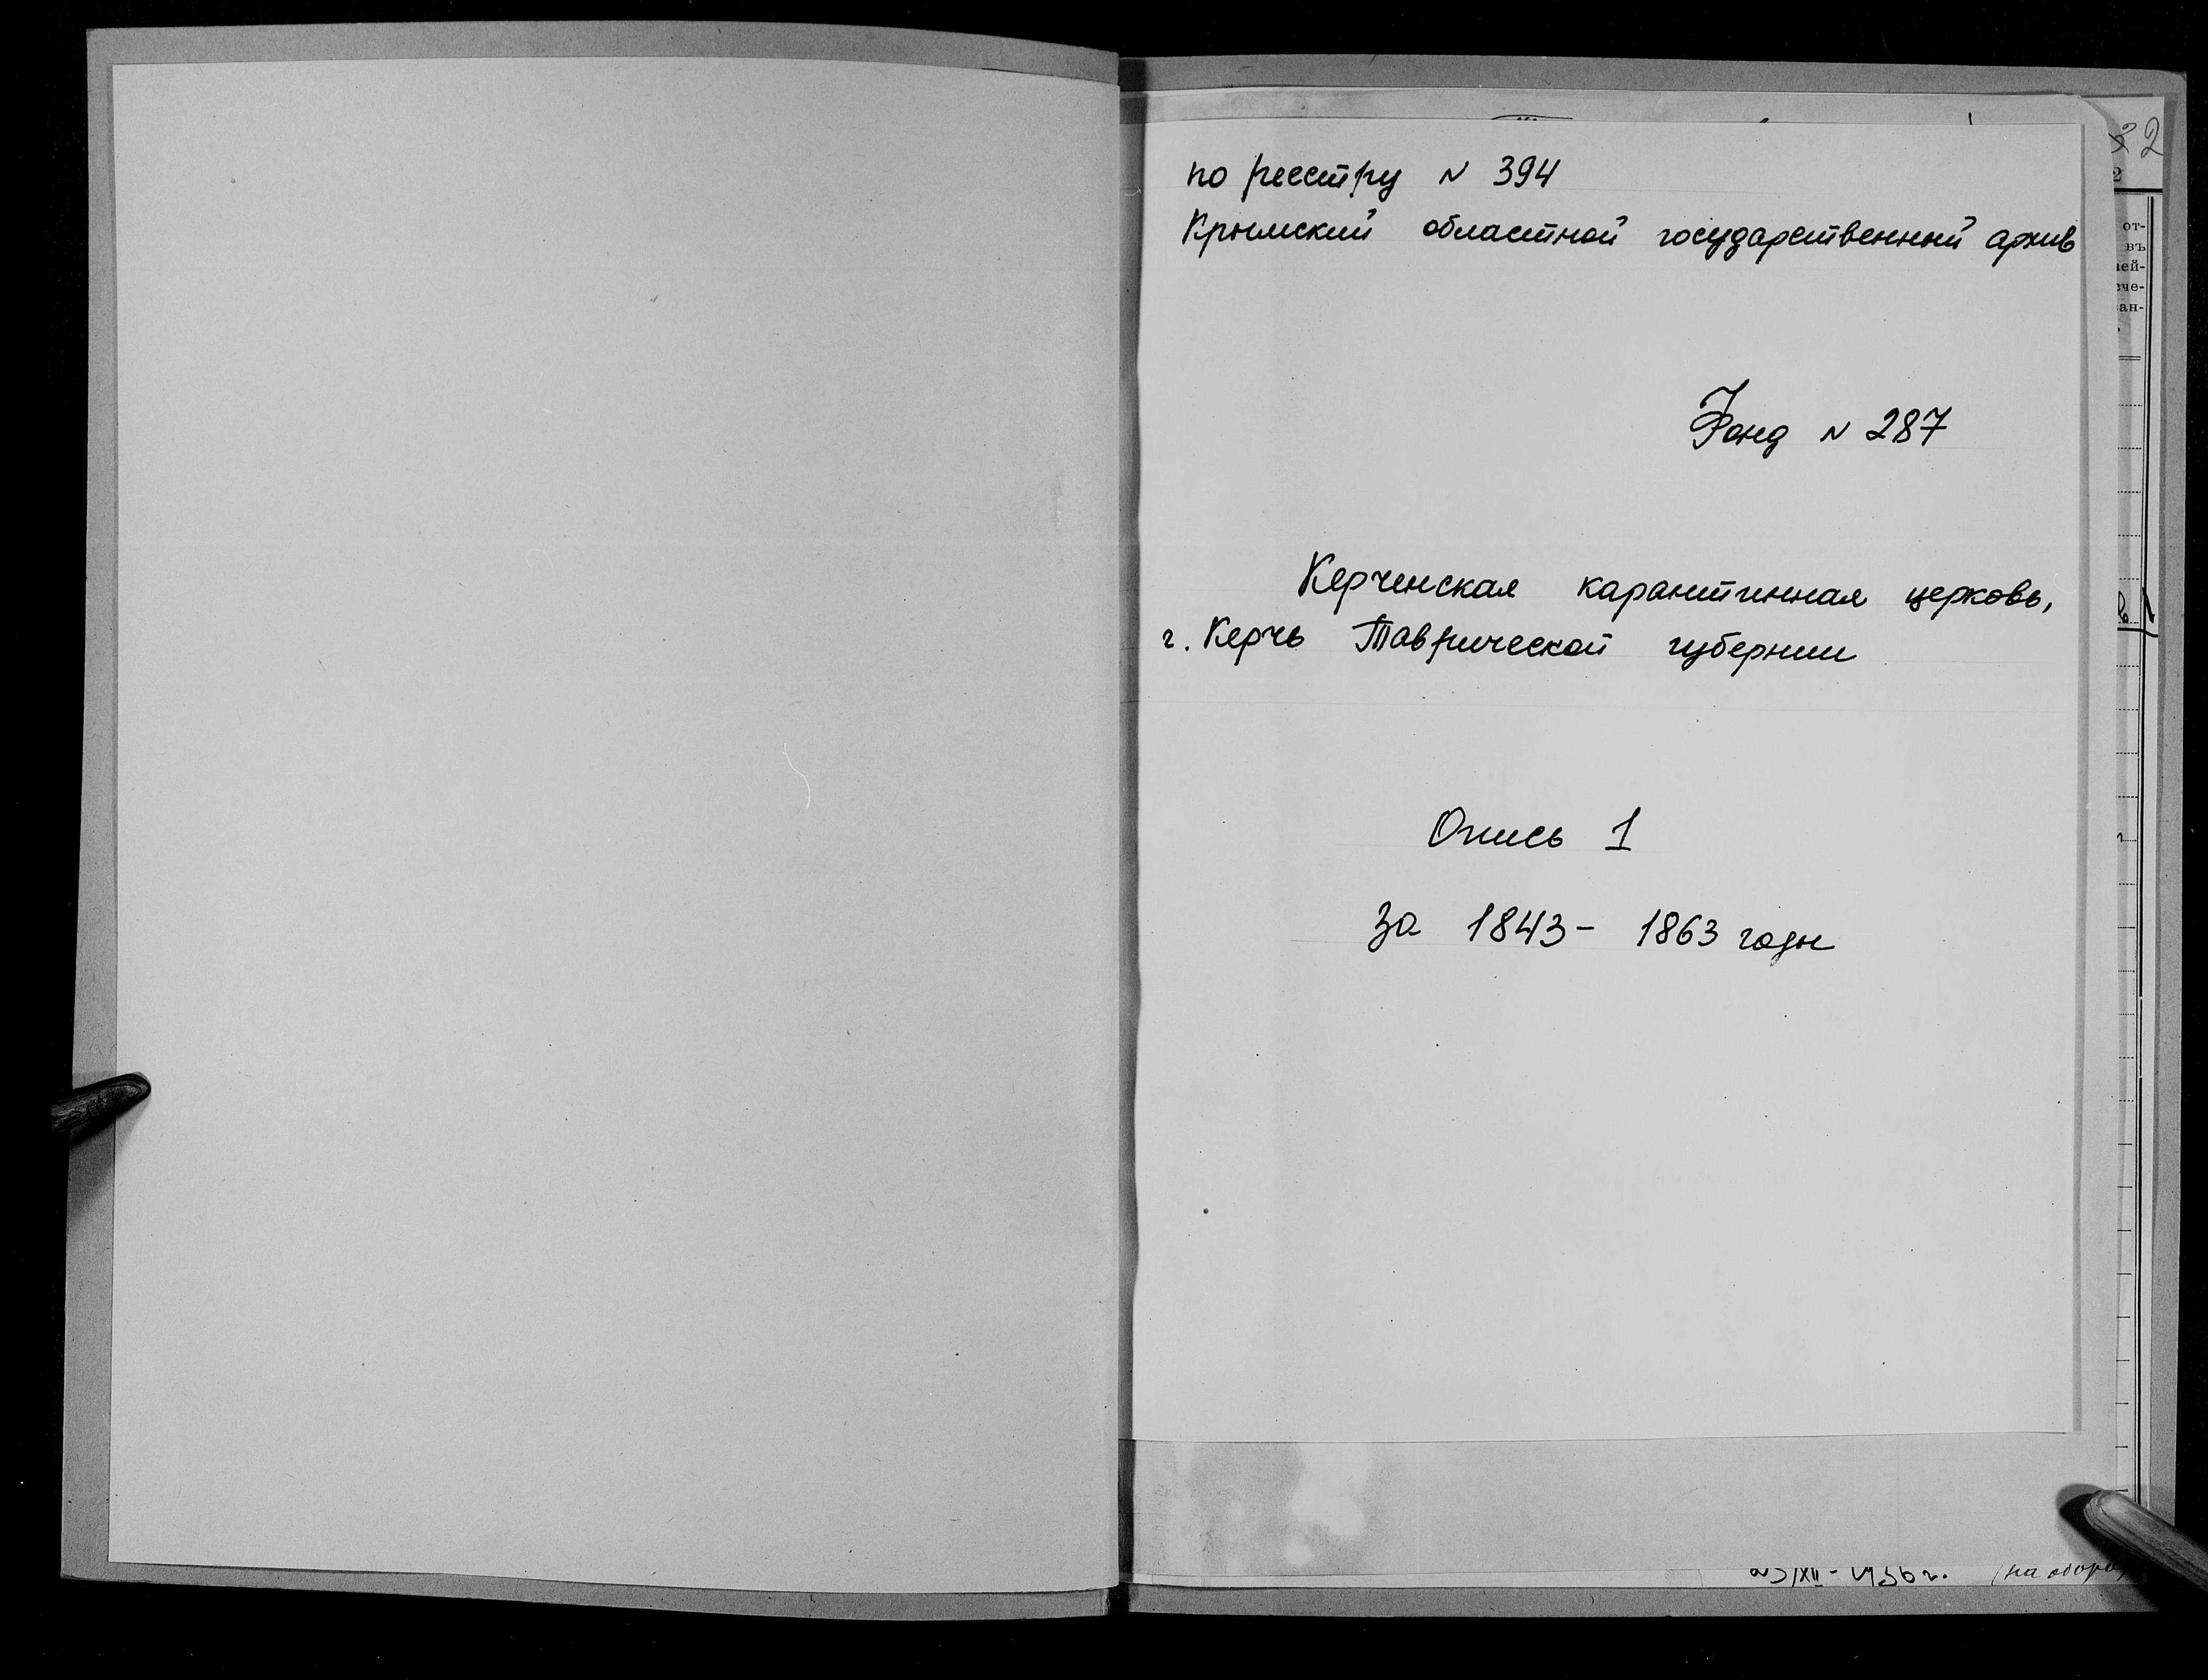 по реестру N 394
Крымский областной государственный архив
Фонд N 287
Керченская карантинная церковь,
г. Керчь Таврической губернии
Опись 1
за 1843- 1863 годы
2
2
от-
въ
ней-
ече-
ван-